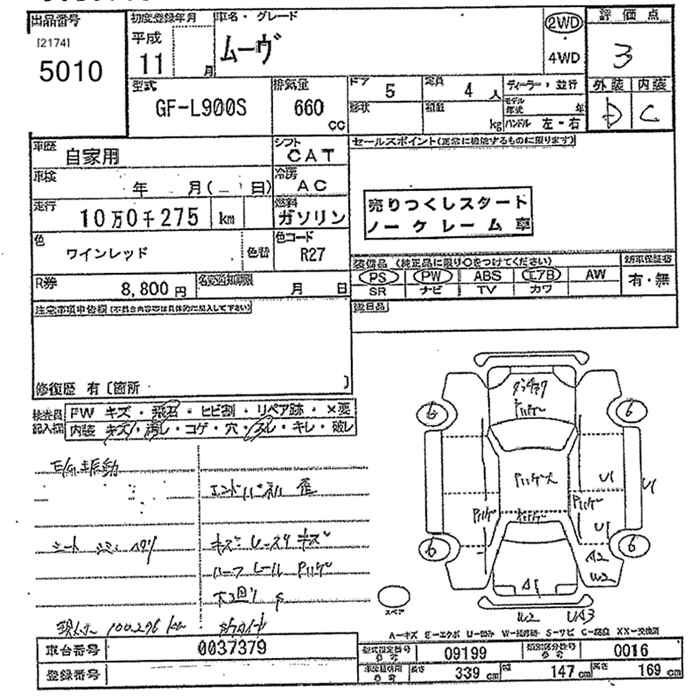 出品番号
[2174]
5010
初度登録年月
平成
11 月
車名・グレード
ムーヴ
2WD
4WD
評価点
3
型式
GF-L900S
排気量
660
cc
ドア 5
定員 4 人
形状
積載
kg
ディーラー・並行
モデル年式 年
ハンドル 左・右
外装 内装
D C
車歴
自家用
シフト
CAT
車検
年 月( 日)
冷房
AC
走行
10万0千275 km
燃料
ガソリン
色
ワインレッド
色替
色コード
R27
R券
8,800円
名変通知期限
月 日
セールスポイント(正常に機能するものに限ります)
売りつくしスタート
ノークレーム車
装備品 (純正品に限り○をつけてください)
PS PW ABS エアB AW
SR ナビ TV カワ
新車保証書
有・無
後日品
注意事項申告欄(不具合内容等は具体的に記入して下さい)
修復歴 有〔箇所 〕
検査員
記入欄
FW キズ・飛石・ヒビ割・リペア跡・×要
内装 キズ・汚レ・コゲ・穴・スレ・キレ・破レ
E/G振動
エンドパネル 歪
シート シミ
キズ
ハーフ
下廻り S
100,276 km
6
6
6
6
U1
U1
U1
A2
W2
A1
W2
UA3
スペア
A-キズ E-エクボ U-凹み W-補修跡 S-サビ C-腐食 XX-交換済
車台番号
0037379
登録番号
型式指定番号
09199
類別区分番号
0016
長さ 339 cm
幅 147 cm
高さ 169 cm